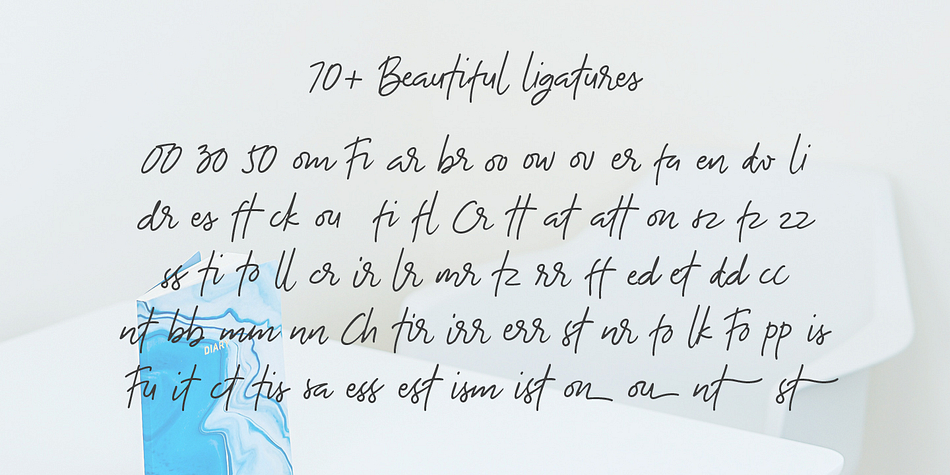 70+ Beautiful ligatures
00 30 50 om Fi ar br oo ow ov er fa en do li
dr es ft ck ou fi fl Cr tt at att on sz fz zz
ss ti to ll cr ir lr mr tz rr ff ed et dd cc
nt bb mm nn Ch tir irr err st nr fo lk Fo pp is
DIARY
Fu it ct tis sa ess est ism ist on ou nt st